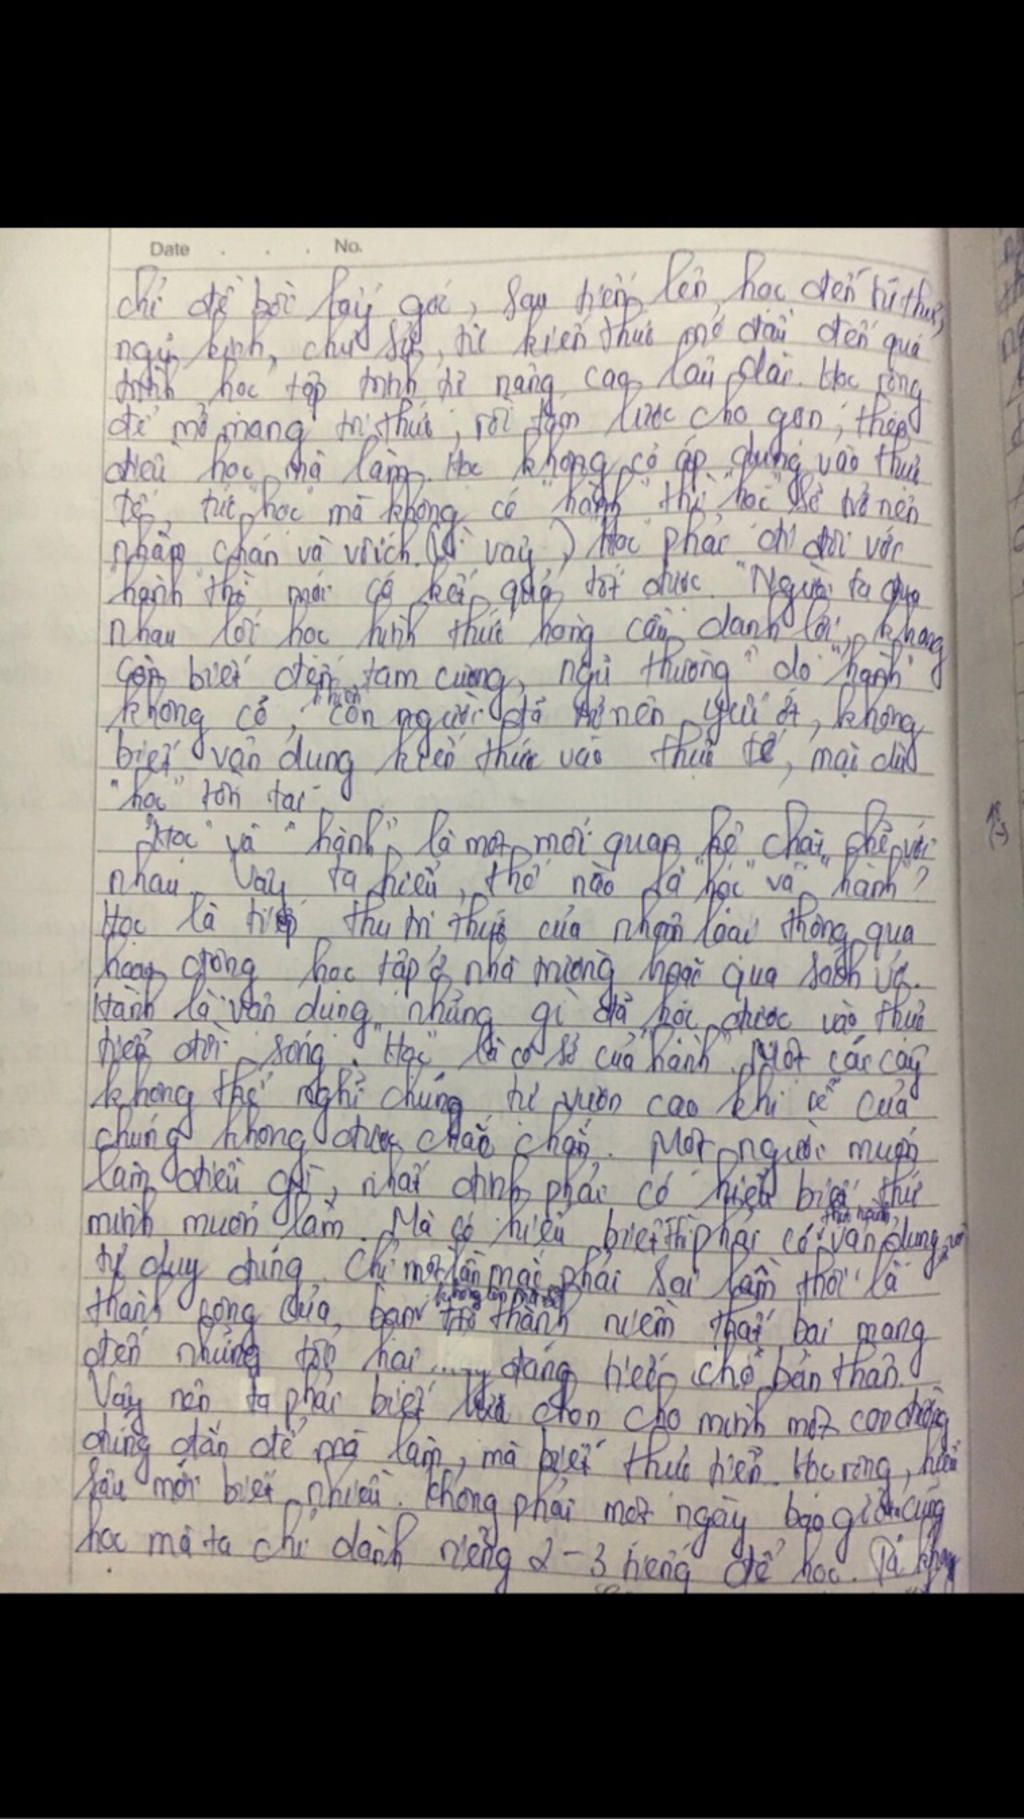 Date . . . No.
chỉ để bồi lấy gốc, sau tiến lên học đến tứ thư,
ngũ kinh, chư sử, từ kiến thức mở đầu đến quá
trình học tập trình tự nâng cao lâu dài. Học rộng
để mở mang tri thức, rồi tóm lược cho gọn, theo
điều học mà làm. Học không có áp dụng vào thực
tế, tức "học" mà không có "hành" thì "học" sẽ trở nên
nhàm chán và vô ích. (Vì vậy) Học phải đi đôi với
hành thì mới có kết quả tốt được. "Người ta đua
nhau lối học hình thức hòng cầu danh lợi, không
còn biết đến tam cương, ngũ thường" do "hành"
không có, nhiều con người đã trở nên yếu ớt, không
biết vận dụng kiến thức vào thực tế, mặc dù
"học" tồn tại.
"Học" và "hành" là một mối quan hệ chặt chẽ với
nhau. Vậy ta hiểu, thế nào là "học" và "hành"?
Học là tiếp thụ tri thức của nhân loại thông qua
hoạt động học tập ở nhà trường hoặc qua sách vở.
Hành là vận dụng những gì đã học được vào thực
tiễn đời sống. "Học" là cơ sở của "hành". Một cái cây
không thể nghĩ chúng tự vươn cao khi rễ của
chúng không được chắc chắn. Một người muốn
làm điều gì, nhất định phải có hiểu biết thứ
mình muốn làm. Mà có hiểu biết thì phải có vận dụng,
tư duy đúng. Chỉ một lần mắc phải sai lầm thôi là
thành công của bạn không còn mà sẽ trở thành niềm thất bại mang
đến những tổn hại ..... đáng tiếc cho bản thân.
Vậy nên ta phải biết lựa chọn cho mình một con đường
đúng đắn để mà làm, mà biết thực hiện. Học rộng, hiểu
sâu mới biết nhiều. Không phải một ngày bao giờ cũng
học mà ta chỉ dành riêng 2-3 tiếng để học. Ta không